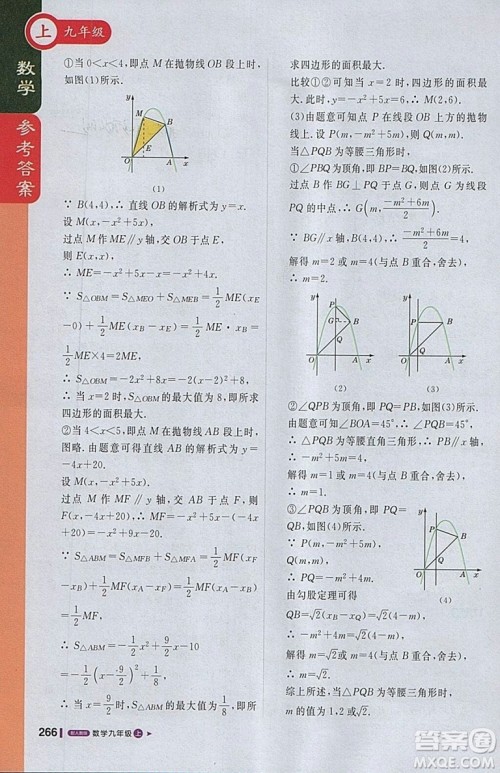 上 九年级
数学
参考答案
①当 0<x<4,即点 M 在抛物线 OB 段上时,
如图(1)所示.
y
M
B
E
O
A
x
(1)
∵ B(4,4),∴ 直线 OB 的解析式为 y=x.
设 M(x,-x²+5x).
过点 M 作 ME∥y 轴,交 OB 于点 E,
则 E(x,x),
∴ ME=-x²+5x-x=-x²+4x.
∵ S△OBM=S△MEO+S△MEB=1/2 ME(xE
-0)+1/2 ME(xB-xE)=1/2 ME·xB=
1/2 ME×4=2ME,
∴ S△OBM=-2x²+8x=-2(x-2)²+8,
∴ 当 x=2 时,S△OBM的最大值为 8,即所求
四边形的面积最大.
②当 4<x<5 时,点 M 在抛物线 AB 段上时,
图略. 由题意可得直线 AB 的解析式为 y=
-4x+20.
设 M(x,-x²+5x).
过点 M 作 MF∥y 轴,交 AB 于点 F,则
F(x,-4x+20),
∴ MF=-x²+5x-(-4x+20)=-x²+
9x-20.
∵ S△ABM=S△MFB+S△MFA=1/2 MF(xF-
xB)+1/2 MF(xA-xF)=1/2 MF(xA-xB)=
1/2 MF,
∴ S△ABM=-1/2x²+9/2x-10
=-1/2(x-9/2)²+1/8,
∴ 当 x=9/2时,S△ABM的最大值为1/8,即所
求四边形的面积最大.
比较①②可知,当 x=2 时,四边形面积最大.
当 x=2 时,y=-x²+5x=6,∴ M(2,6).
(3)由题意可知点 P 在线段 OB 上方的抛物
线上,设 P(m,-m²+5m),则 Q(m,m).
当△PQB 为等腰三角形时,
①∠PBQ 为顶角,即 PB=BQ 时,如图(2),
过点 B 作 BG⊥PQ 于点 G,则点 G 为线段
PQ 的中点,∴ G(m,(-m²+6m)/2).
∵ BG∥x 轴,∴ (-m²+6m)/2=4,
解得 m=2 或 m=4(与点 B 重合,舍去),
∴ m=2.
y
P
G
B
Q
O
x
(2)
y
P
B
Q
O
x
(3)
②∠QPB 为顶角,即 PQ=PB 时,如图(3).
由题意可知∠BOA=45°.
∵ PQ∥y 轴,∴ ∠PQB=45°,∴ PB∥x 轴,
∴ -m²+5m=4,
解得 m=1 或 m=4(与点 B 重合,舍去),
∴ m=1.
③∠PQB 为顶角,即 PQ=
BQ 时,如图(4).
PQ=-m²+5m-m=
-m²+4m.
由勾股定理可得
QB=√2(xB-xQ)=√2(4-m),
∴ -m²+4m=√2(4-m),
解得 m=√2或 m=4(与点 B 重合,舍去),
∴ m=√2.
综上所述,当△PQB 为等腰三角形时,m 的
值为
y
P
B
Q
O
x
(4)
266 配人教版 数学九年级 上
答案圈
MXQE.COM